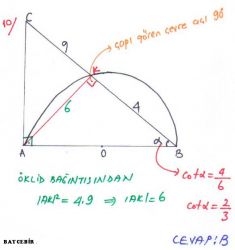 10/
C
9
çapı gören çevre açı 90
K
6
4
α
A
O
B
ÖKLİD BAĞINTISINDAN
|AK|² = 4.9 ⇒ |AK| = 6
cotα = 4/6
cotα = 2/3
CEVAP: B
BATCEBİR